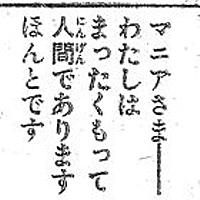 マニアさま――
わたしは
まったくもって
人間であります
ほんとです